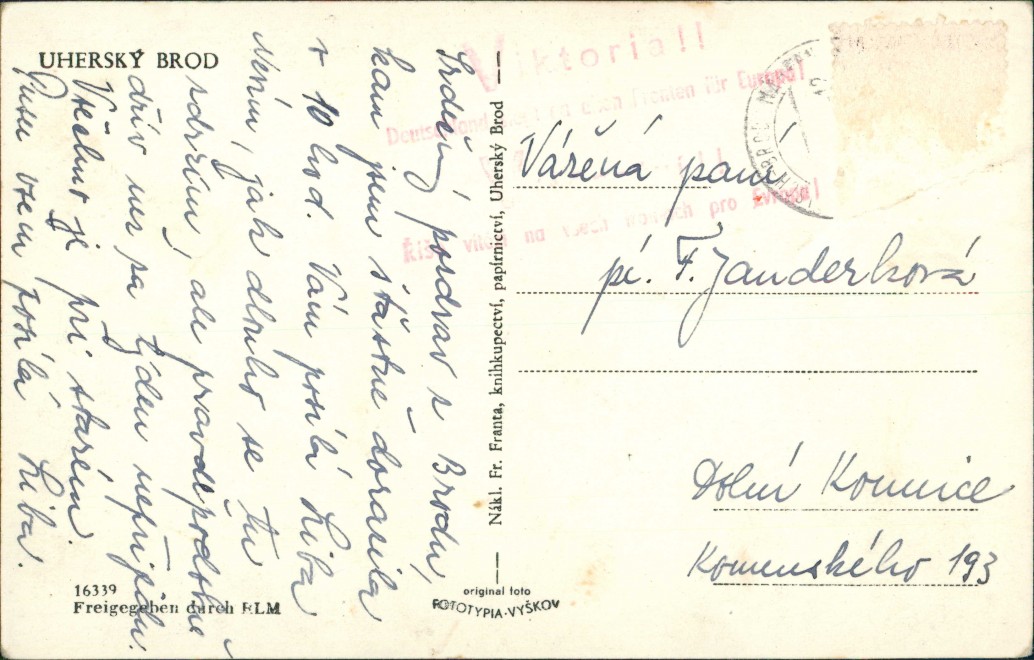 UHERSKÝ BROD
Srdečný pozdrav z Brodu,
kam jsem šťastně dorazila
v 10 hod. Vám posílá Liba
Nevím, jak dlouho se tu
zdržím, ale pravděpodobně
dřív než za týden nepřijedu.
Všechno je při starém.
Pusu všem posílá Liba.
16339
Freigegeben durch RLM
Nákl. Fr. Franta, knihkupectví, papírnictví, Uherský Brod
original foto
FOTOTYPIA-VYŠKOV
Viktoria!!
Deutschland an allen Fronten für Europa!
vítězí na všech frontách pro Evropu!
Vážená paní
pí. F. Janderková
Dolní Kounice
Komenského 193